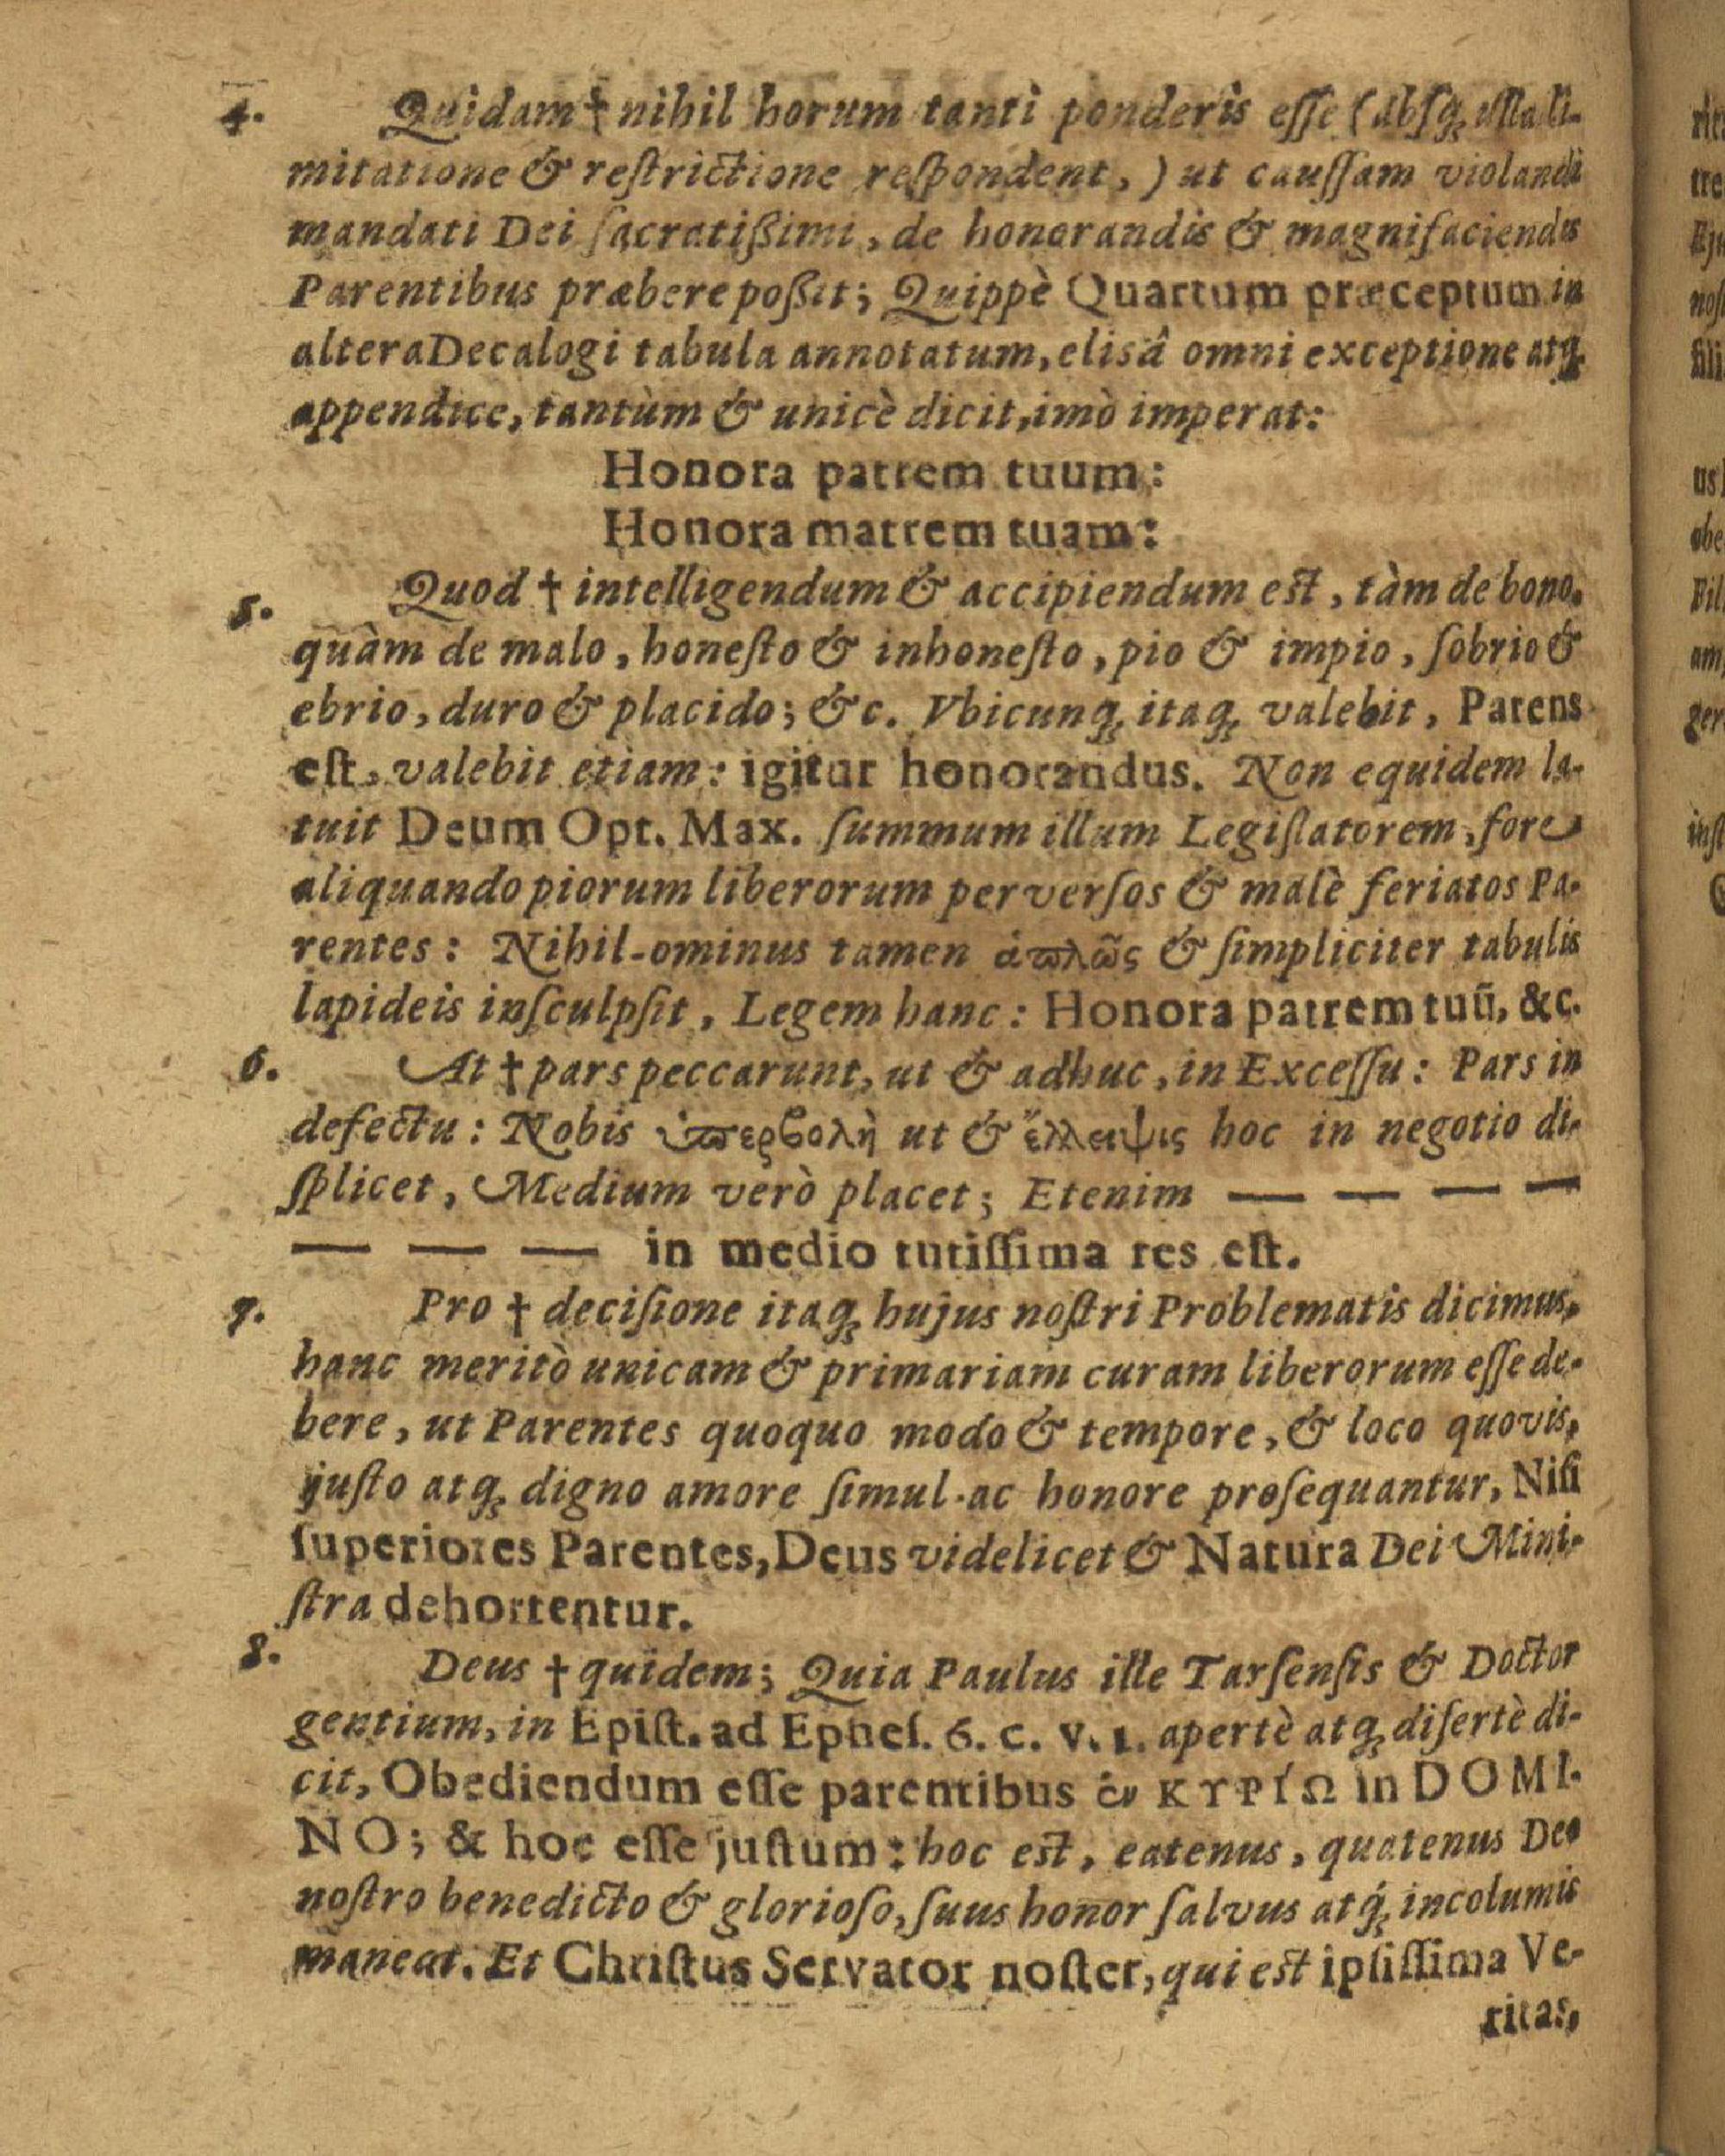 4. Quidam † nihil horum tanti ponderis eſſe (abſq; ulla li-
mitatione & reſtrictione reſpondent,) ut cauſſam violandi
mandati Dei ſacratißimi, de honorandis & magnifaciendis
Parentibus præbere poßit; Quippè Quartum præceptum in
altera Decalogi tabula annotatum, elisâ omni exceptione atq;
appendice, tantùm & unicè dicit, imò imperat:
Honora patrem tuum:
Honora matrem tuam:
5. Quod † intelligendum & accipiendum est, tàm de bono,
quàm de malo, honeſto & inhoneſto, pio & impio, ſobrio &
ebrio, duro & placido; &c. Vbicunq; itaq; valebit, Parens
eſt, valebit etiam: igitur honorandus. Non equidem la-
tuit Deum Opt. Max. ſummum illum Legiſlatorem, fore
aliquando piorum liberorum perverſos & malè feriatos Pa-
rentes: Nihil-ominus tamen ἁπλῶς & ſimpliciter tabulis
lapideis inſculpſit, Legem hanc: Honora patrem tuũ, &c.
6. At † pars peccarunt, ut & adhuc, in Exceſſu: Pars in
defectu: Nobis ὑπερβολὴ ut & ἔλλειψις hoc in negotio di-
ſplicet, Medium verò placet; Etenim — — — —
— — — in medio tutiſſima res eſt.
7. Pro † deciſione itaq; hujus noſtri Problematis dicimus,
hanc meritò unicam & primariam curam liberorum eſſe de-
bere, ut Parentes quoquo modo & tempore, & loco quovis,
juſto atq; digno amore ſimul-ac honore proſequantur, Niſi
ſuperiores Parentes, Deus videlicet & Natura Dei Mini-
ſtra dehortentur.
8. Deus † quidem; Quia Paulus ille Tarſenſis & Doctor
gentium, in Epiſt. ad Epheſ. 6. c. v. 1. apertè atq; diſertè di-
cit, Obediendum eſſe parentibus ἐν ΚΥΡΊΩ in DOMI-
NO; & hoc eſſe juſtum: hoc est, eatenus, quatenus Deo
noſtro benedicto & glorioſo, ſuus honor ſalvus atq; incolumis
maneat. Et Chriſtus Servator noſter, qui est ipſiſſima Ve-
ritas,